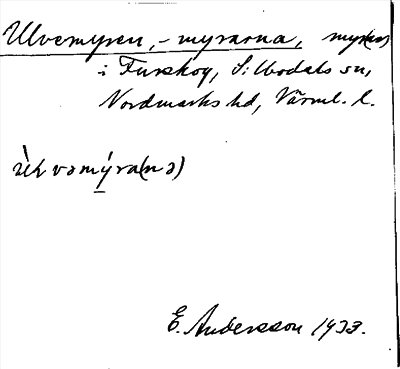 Ulvemyren, -myrarna, myr(ar)
i Furskog, Silbodals sn,
Nordmarks hd, Värml. l.
ùlvəmýra(nə)
E. Andersson 1933.